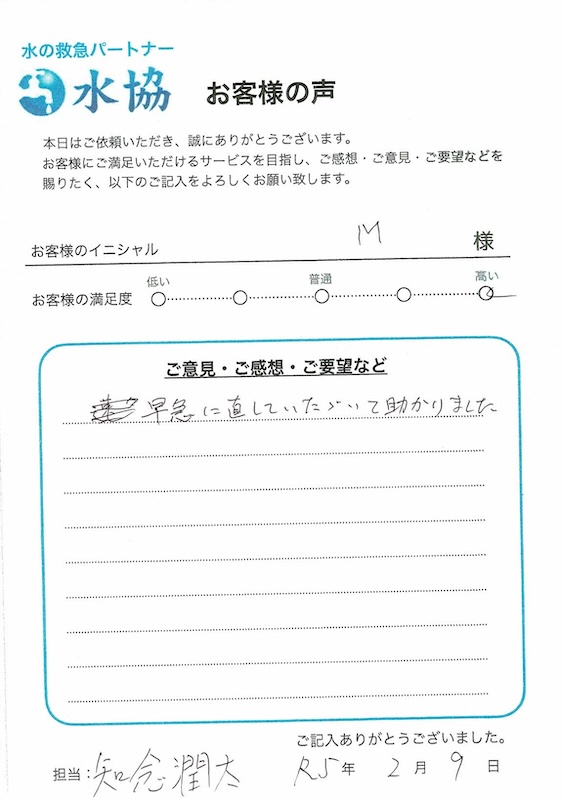 水の救急パートナー
水協 お客様の声
本日はご依頼いただき、誠にありがとうございます。
お客様にご満足いただけるサービスを目指し、ご感想・ご意見・ご要望などを
賜りたく、以下のご記入をよろしくお願い致します。
お客様のイニシャル M 様
低い 普通 高い
お客様の満足度
ご意見・ご感想・ご要望など
早急に直していただいて助かりました
ご記入ありがとうございました。
担当:知念潤太 R5年 2月 9日